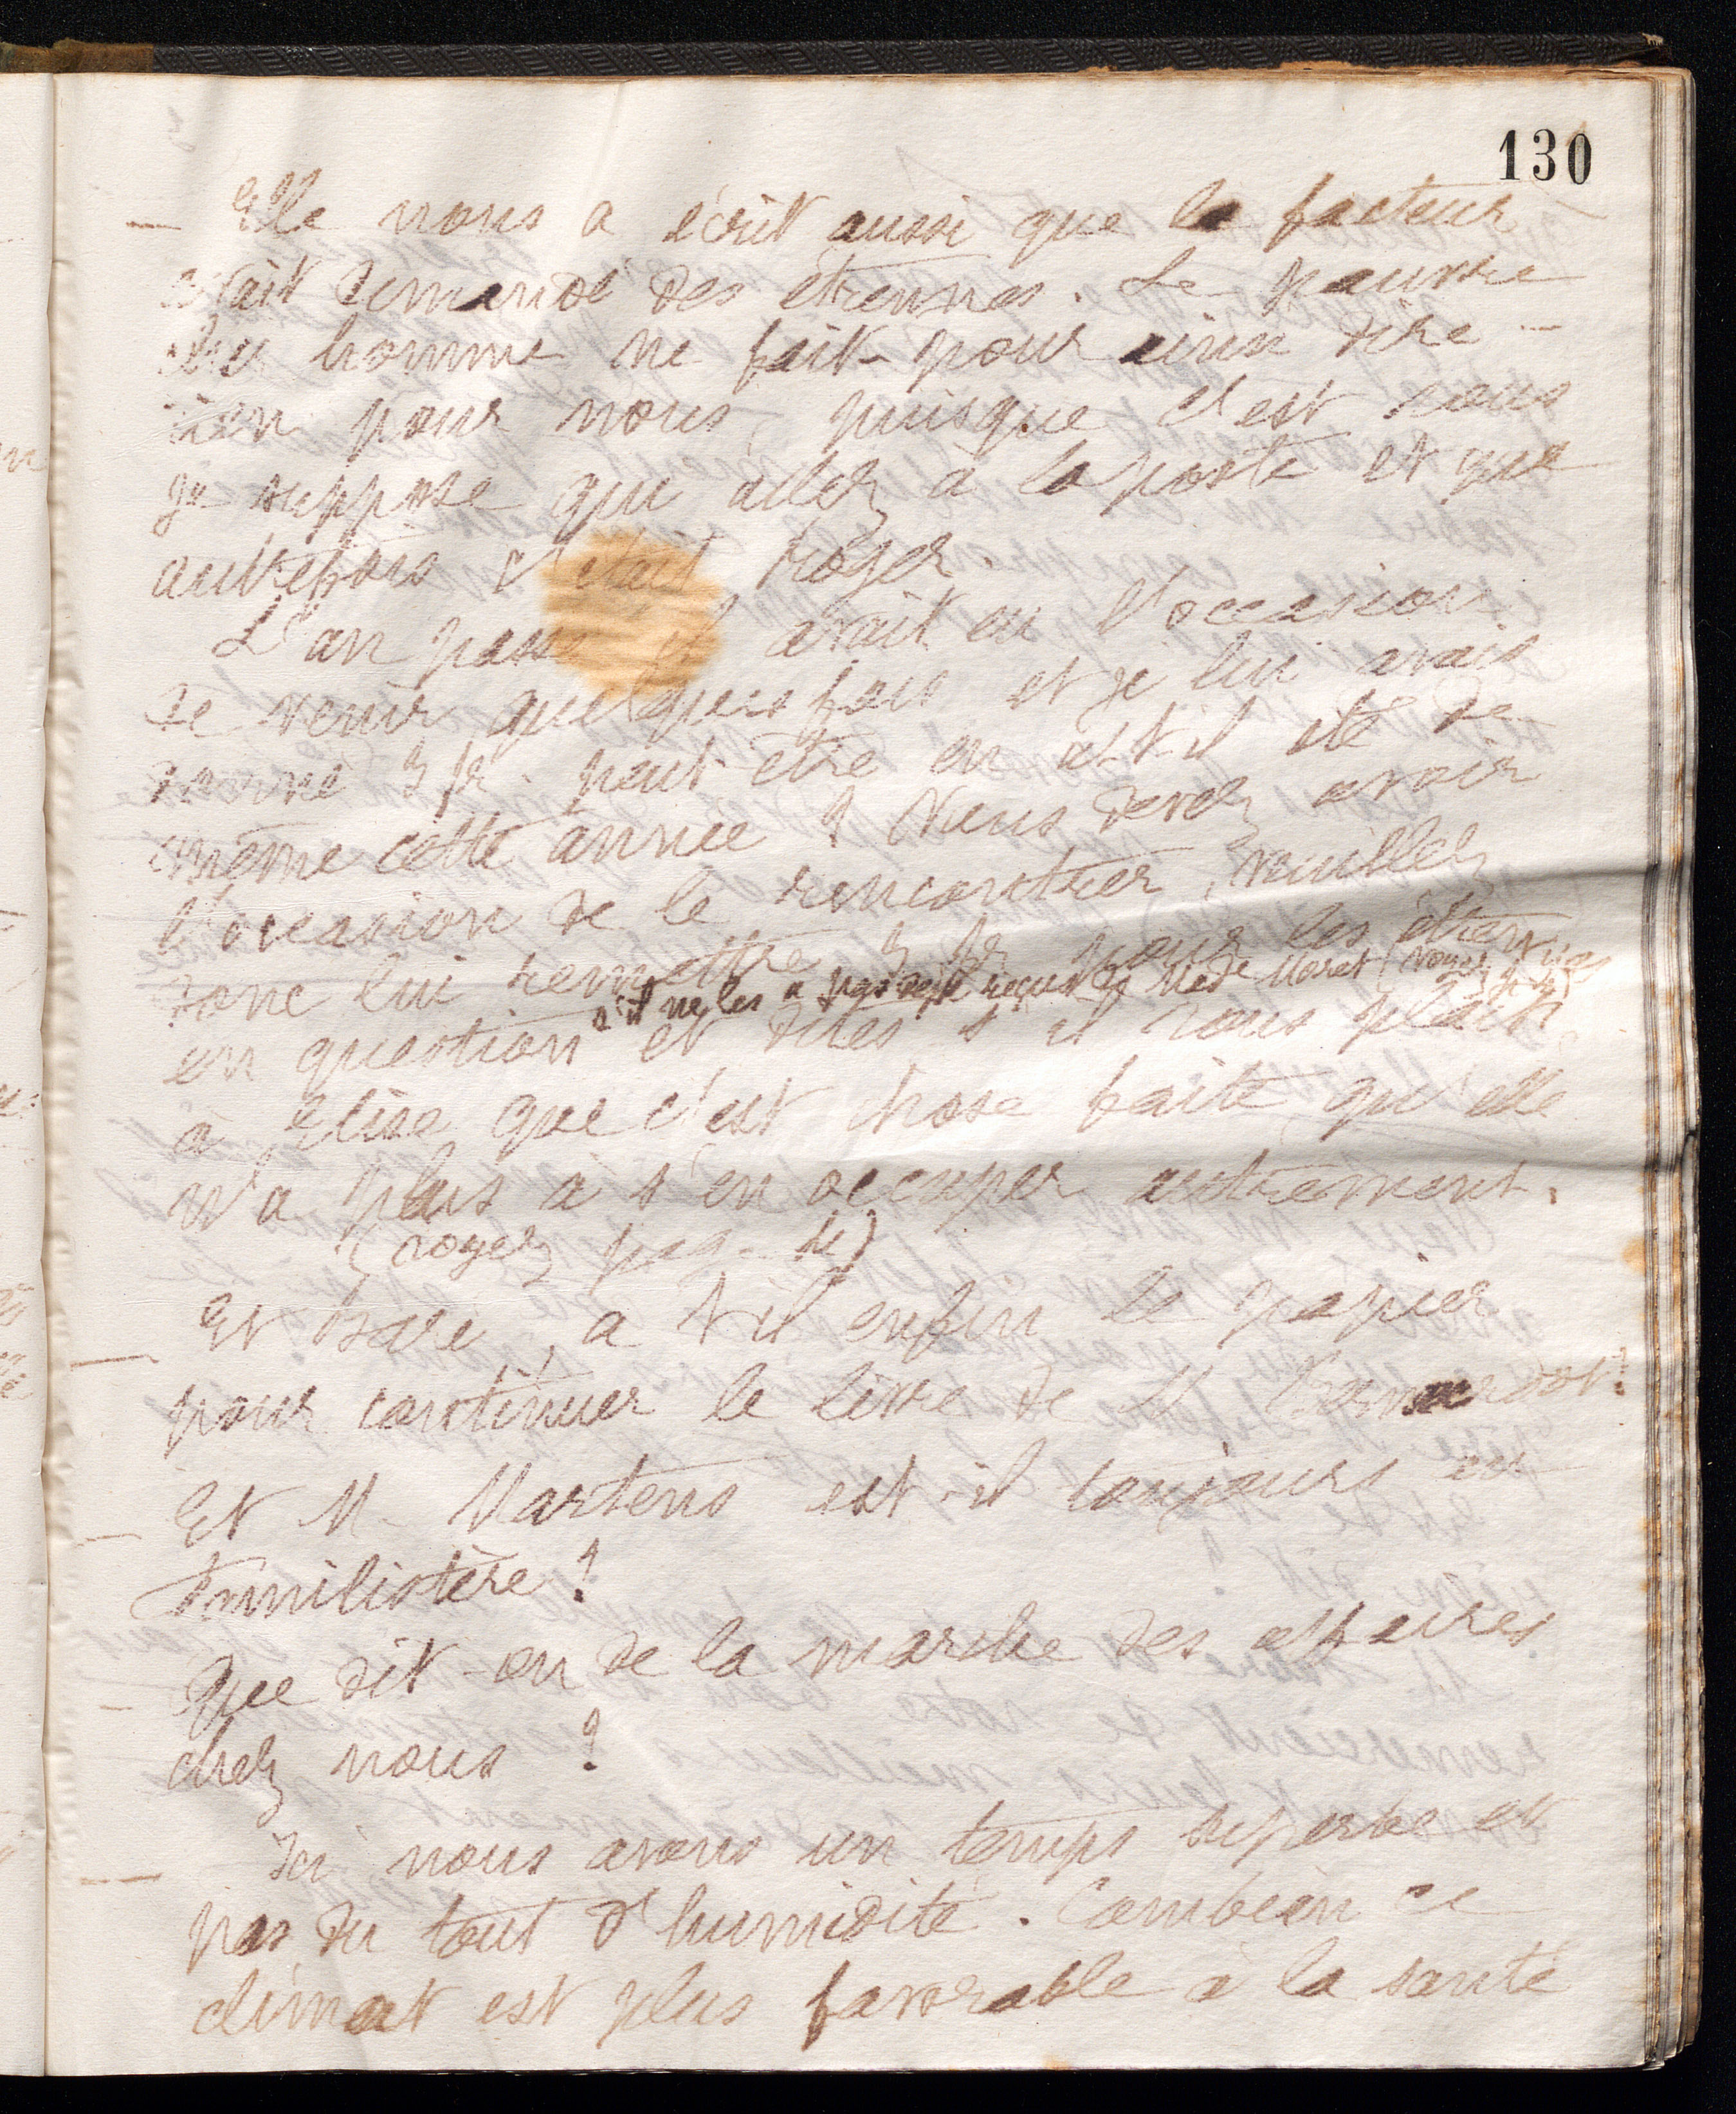 130
— Elle nous a écrit aussi que le facteur
avait demandé des étrennes. Le pauvre
cher homme ne fait pour ainsi dire
rien pour nous, puisque c'est vous
je suppose qui allez à la poste et que
autrefois c'était Roger.
L'an passé il avait eu l'occasion
de venir quelques fois et je lui avais
donné 3 fr. peut-être en a-t-il été de
même cette année ? Vous devez avoir
l'occasion de le rencontrer, veuillez
donc lui remettre 3 fr pour les étrennes
s'il ne les a pas déjà reçus de Mad Moret (voyez
en question et dites s'il vous plaît
à Élise que c'est chose faite qu'elle
n'a plus à s'en occuper autrement.
(voyez pag.
— Et Sare, a t'il enfin le papier
pour continuer le livre de M
— Et M. Martens est-il toujours au
Familistère ?
— Que dit-on de la marche des affaires
chez nous ?
— Ici nous avons un temps superbe et
pas du tout d'humidité. Combien ce
climat est plus favorable à la santé